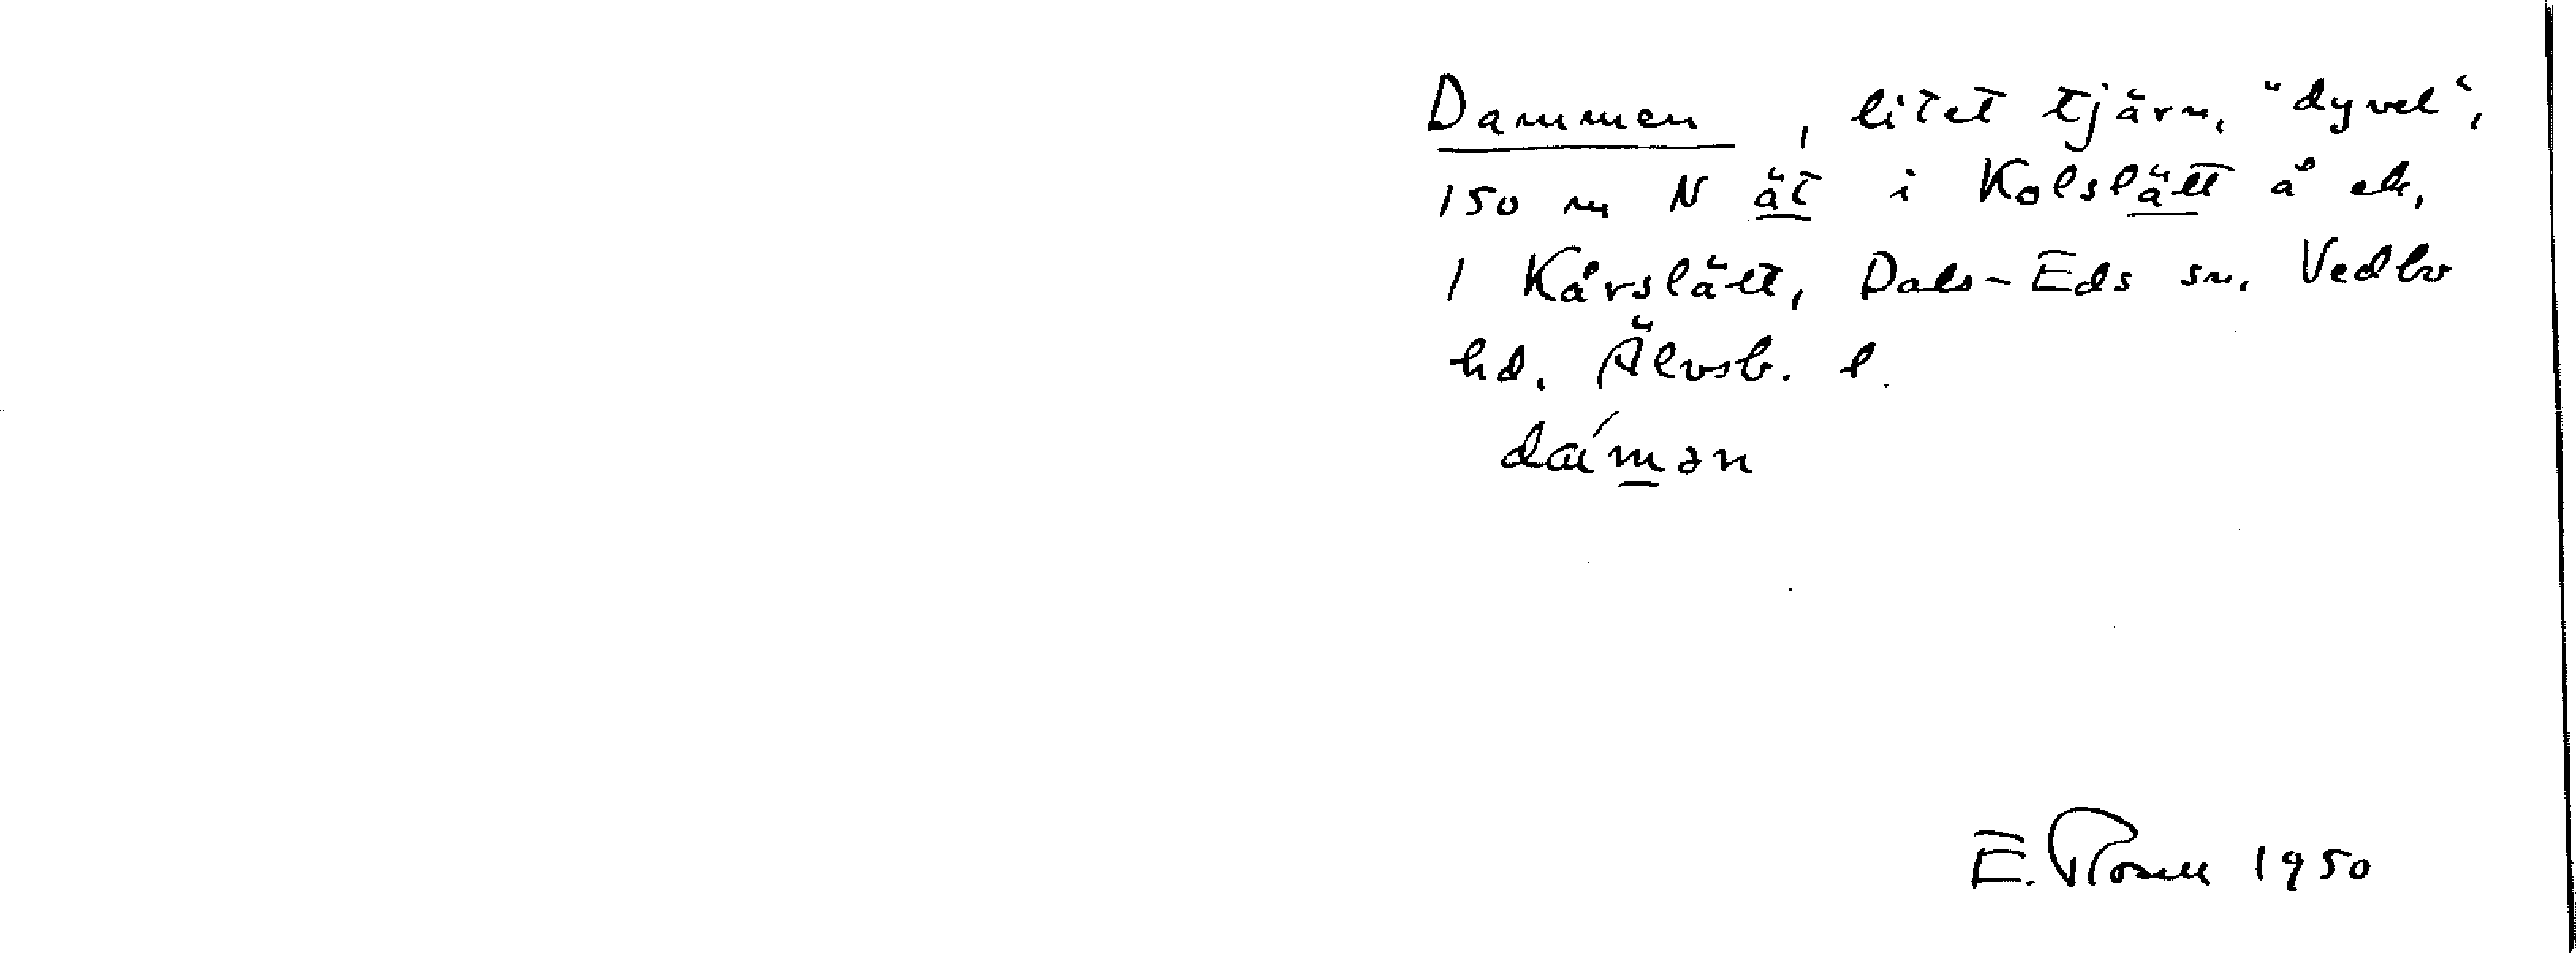 Dammen, litet tjärn, "dyvel",
150 m N ät i Kolslätt å ek.
1 Kårslätt, Dals-Eds sn. Vedbo
hd. Älvsb. l.
dámən
E. Rosell 1950